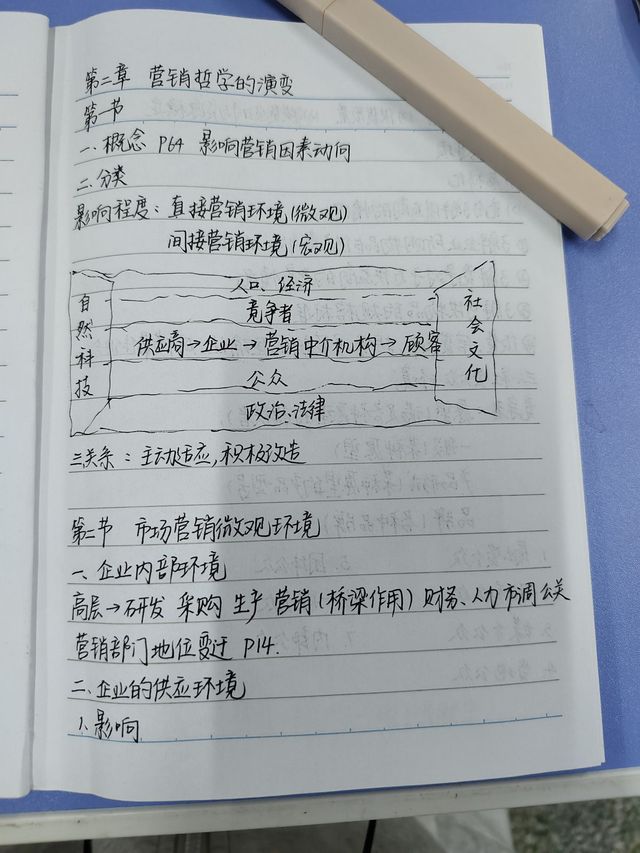 第二章 营销哲学的演变
第一节
一.概念 P64 影响营销因素动向
二.分类
影响程度:直接营销环境(微观)
间接营销环境(宏观)
自然科技
人口、经济
竞争者
供应商→企业→营销中介机构→顾客
公众
政治、法律
社会文化
三关系:主动适应,积极改造
第二节 市场营销微观环境
一、企业内部环境
高层→研发 采购 生产 营销(桥梁作用) 财务、人力 市调 公关
营销部门地位变迁 P14.
二、企业的供应环境
1、影响